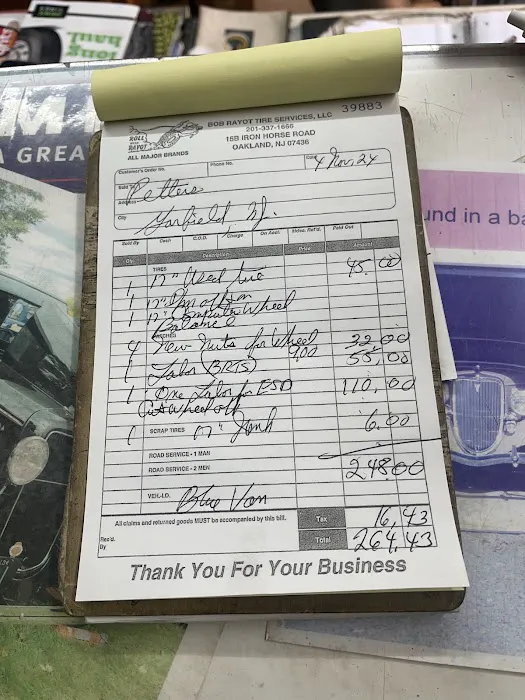 long
haul
M
A GREA
und in a ba
39883
ROLL
WITH
RAYOT
ALL MAJOR BRANDS
BOB RAYOT TIRE SERVICES, LLC
201-337-1656
15B IRON HORSE ROAD
OAKLAND, NJ 07436
Customer's Order No. Phone No. Date 4 Nov, 24
Sold To Petters
Address
City Garfield NJ.
Sold By Cash C.O.D. Charge On Acct. Mdse. Ret'd. Paid Out
Qty. Description Price Amount
TIRES
1 17" Used tire 45.00
1 17"
1 17" Computer Wheel
Balance
4 New Nuts for Wheel 8.00 32.00
1 Labor (BRTS) 55,00
1 One Labor for ESD 110,00
Cut Wheel off
1 SCRAP TIRES 17" Junk 6.00
ROAD SERVICE - 1 MAN
ROAD SERVICE - 2 MEN 248.00
VEH. I.D. Blue Van
All claims and returned goods MUST be accompanied by this bill. Tax 16,43
Rec'd. By Total 264,43
Thank You For Your Business